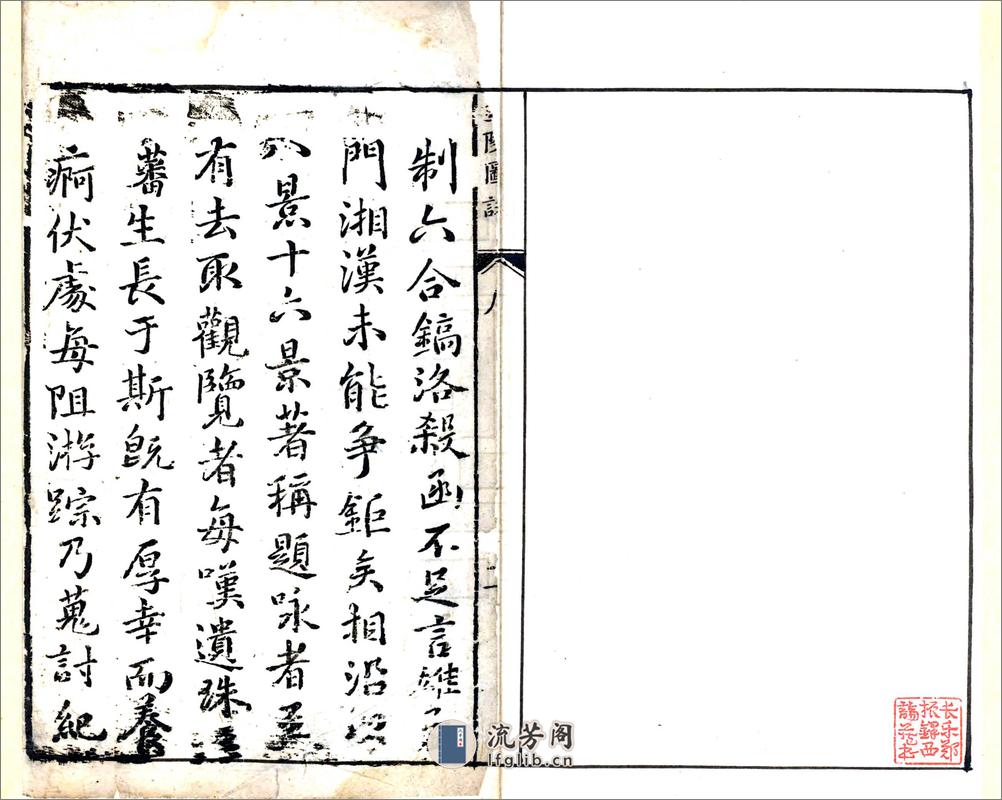 制六合鎬洛殽函不足言雄
門湘漢未能爭鉅矣相沿
八景十六景著稱題咏者
有去取觀覽者每嘆遺珠
蕃生長于斯既有厚幸而養
痾伏處每阻游踪乃蒐討紀
圖
二
长乐郑
振铎西
谛藏书
流芳阁
lfglib.cn